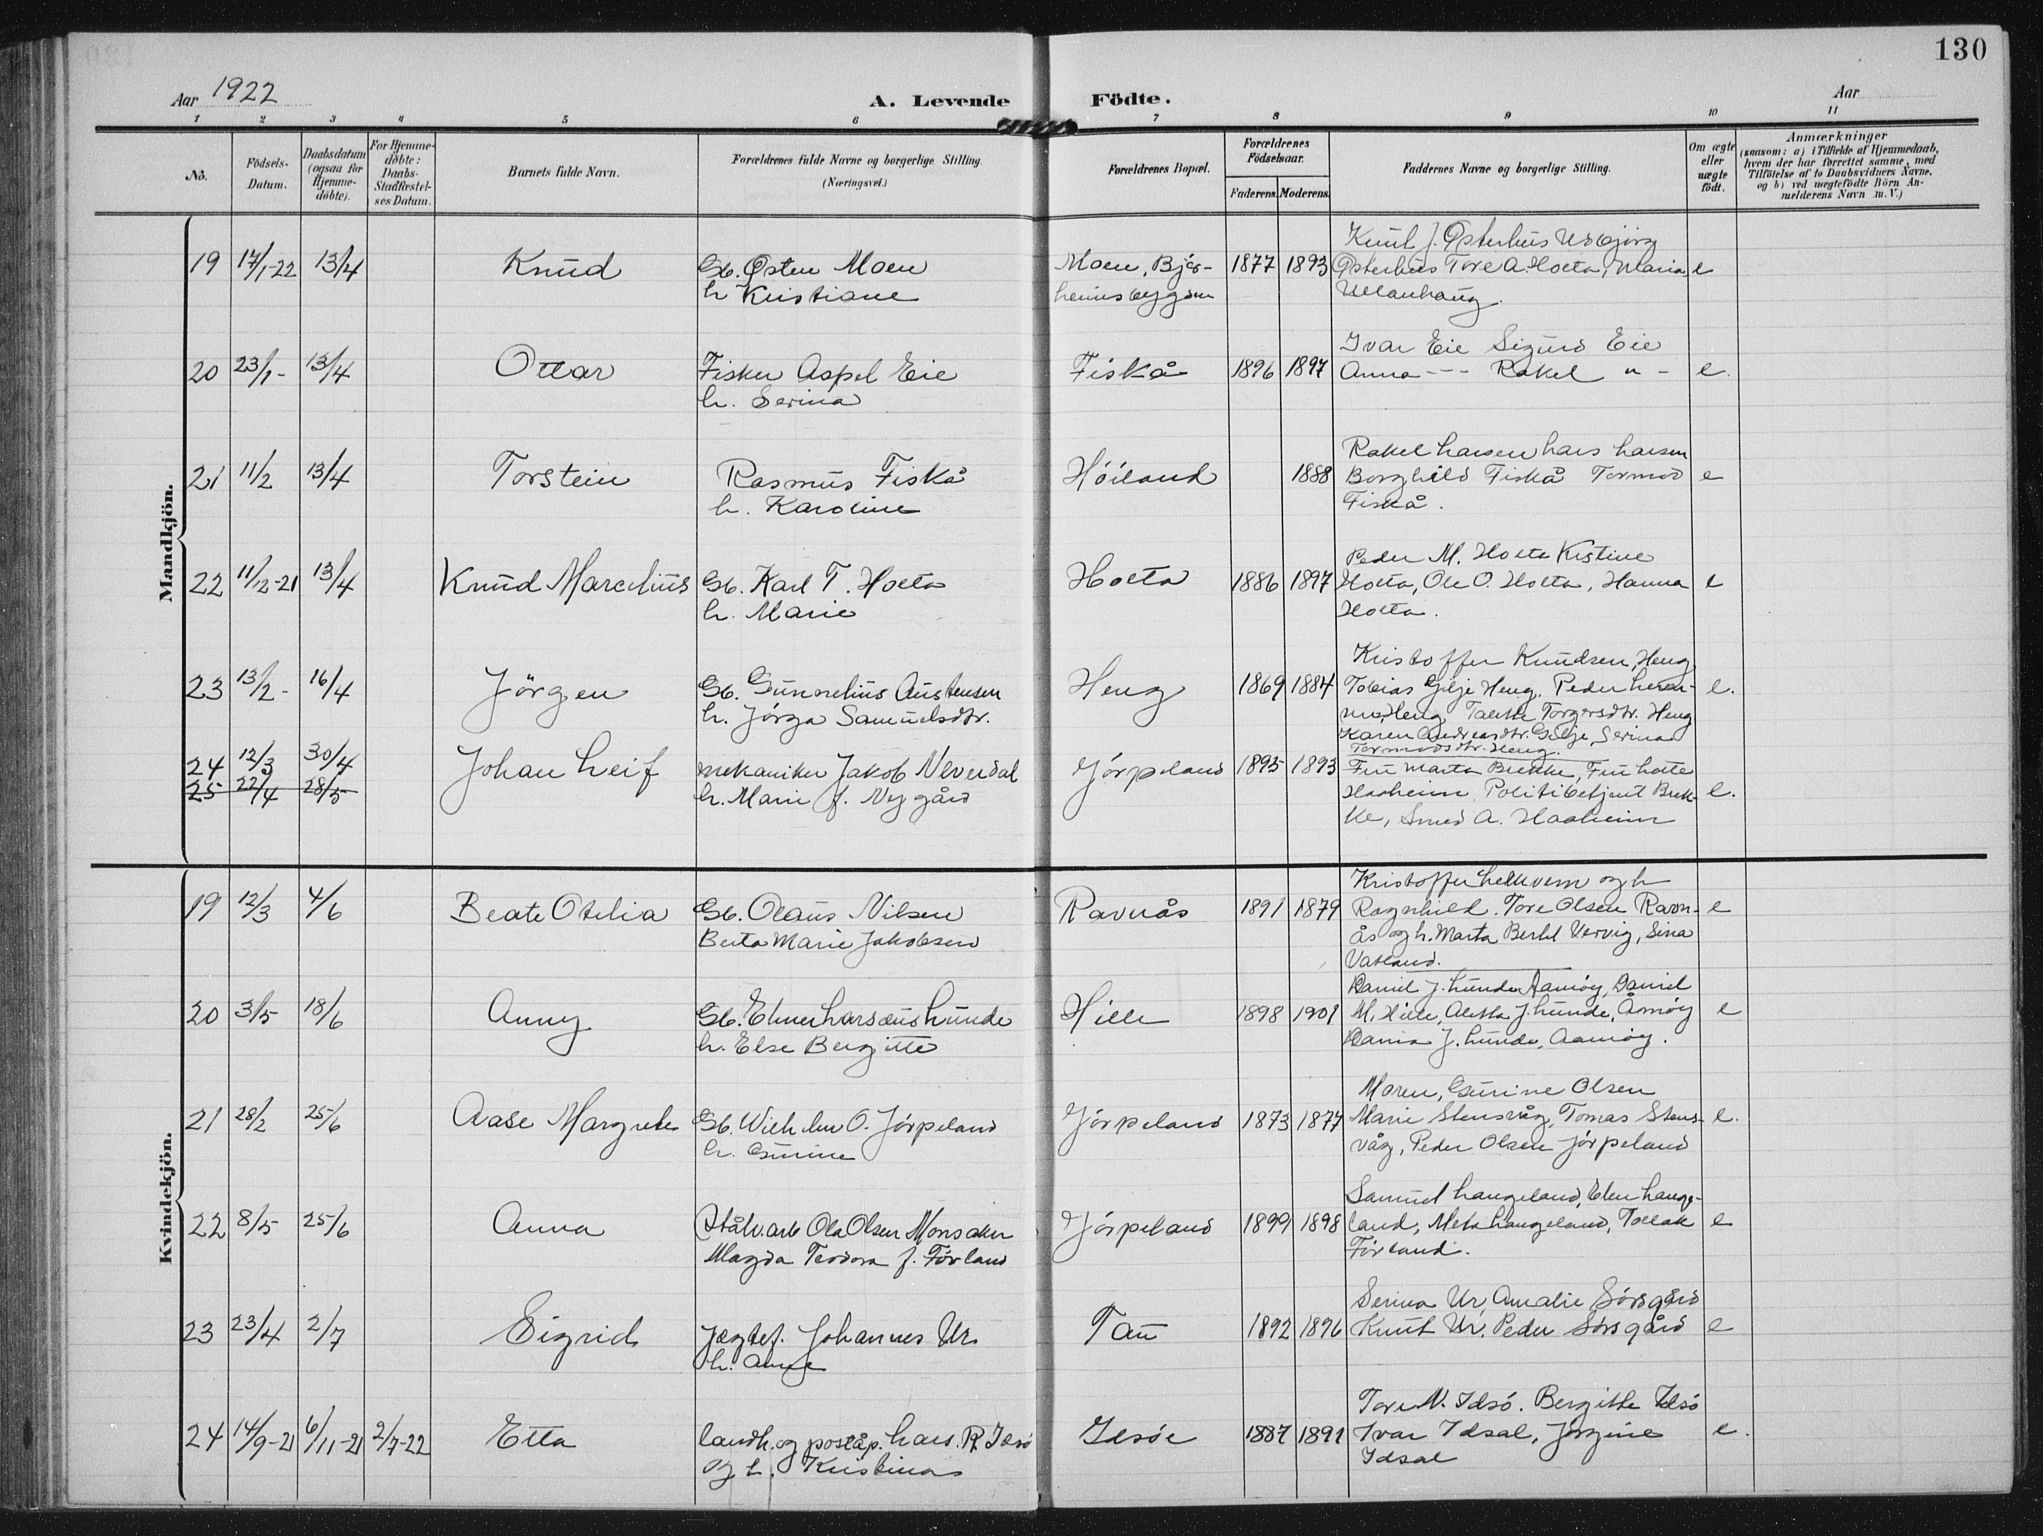 130
Aar 1922
A. Levende Födte.
Aar
1 2 3 4 5 6 7 8 9 10 11
No.
Födsels-Datum.
Daabsdatum (ogsaa for Hjemme-döbte).
For Hjemme-döbte: Daabs-Stadfæstel-ses Datum.
Barnets fulde Navn.
Forældrenes fulde Navne og borgerlige Stilling.
(Næringsvei.)
Forældrenes Bopæl.
Forældrenes Födselsaar.
Faderens. Moderens.
Faddernes Navne og borgerlige Stilling.
Om ægte eller uægte födt.
Anmærkninger
(saasom: a) i Tilfælde af Hjemmedaab, hvem der har forrettet samme, med Tilföielse af to Daabsvidners Navne, og b) ved uægtefödte Börn An-melderens Navn m. V.)
Mandkjön.
Knut J. Østerhus
19 14/1-22 13/4 Knud Gb. Østen Moen Moen, Bjør- 1877 1893 Østerhus Tore A. Holta, Maria e
h Kristiane heimsbygden Ullanhaug.
Ivar Eie Sigurd Eie
20 23/1- 13/4 Ottar Fisker Aspel Eie Fiskå 1896 1897 Anna --- Rakel " - e.
h. Serina
Rakel Larsen Lars Larsen
21 11/2 13/4 Torstein Rasmus Fiskå Höiland 1888 Borghild Fiskå Tormod e
h. Karoline Fiskå.
Peder M. Holta Kistine
22 11/12-21 13/4 Knud Marcelius Gb. Karl T. Holta Holta 1886 1897 Holta, Ole O. Holta, Hanna e
h. Marie Holta.
Kristoffer Knudsen, Heng
23 13/2- 16/4 Jörgen Gb. Gunnelius Austensen Heng 1869 1884 Tobias Gilje Heng. Peder e.
h. Jörga Samuelsdtr. Heng Torgersdtr. Heng
Karen Andreasdtr. Gilje, Serina
Tormodsdtr. Heng.
24 12/3 30/4 Johan Leif mekaniker Jakob Neverdal Jörpeland 1895 1893 Fru Marta Brekke, Fru Lotte
25 22/4 28/5 h. Marie f. Nygård Haaheim Politibetjent Brek- e.
ke, Smed A. Haaheim
Kvindekjön.
Kristoffer og h
19 12/3 4/6 Beate Otelia Gb. Olaus Nilsen Ravnås 1891 1879 Ragnhild. Tore Olsen Ravn- e
Berta Marie Jakobsen ås og h. Marta Bertel Vervig, Sina
Vatland.
Daniel J. Lunde Aamöy, Daniel
20 3/5 18/6 Anny Gb. Elmer Larsæus Lunde Hille 1898 1901 M. Hille, Aletta J. Lunde, Åmöy e
h. Else Bergitte J. Lunde, Aamöy.
Maren, Gurine Olsen
21 28/2 25/6 Aase Margrete Gb. Wilhelm O. Jörpeland Jörpeland 1873 1877 Marie Stensvåg, Tomas Stens- e.
h. Gurine våg, Peder Olsen Jörpeland
Samuel Langeland, Elen Lange-
22 8/5 25/6 Anna Stålv.arb Ola Olsen Monsaker Jörpeland 1899 1898 land, Meta Langeland, Tollak e
Magda Teodora f. Förland Förland.
Serina Ur, Amalie Sörsgård
23 23/4 2/7 Sigrid Jægtef. Johannes Ur Tau 1892 1896 Knut Ur. Peder Sörsgård e
h. Anne
Tore N. Idsö. Bergitte Idsö
24 14/9-21 6/11-21 2/7-22 Etta landh. og poståp. Lars R. Idsö Idsöe 1887 1891 Ivar Idsal, Jörgine e.
og h. Kristina Idsal